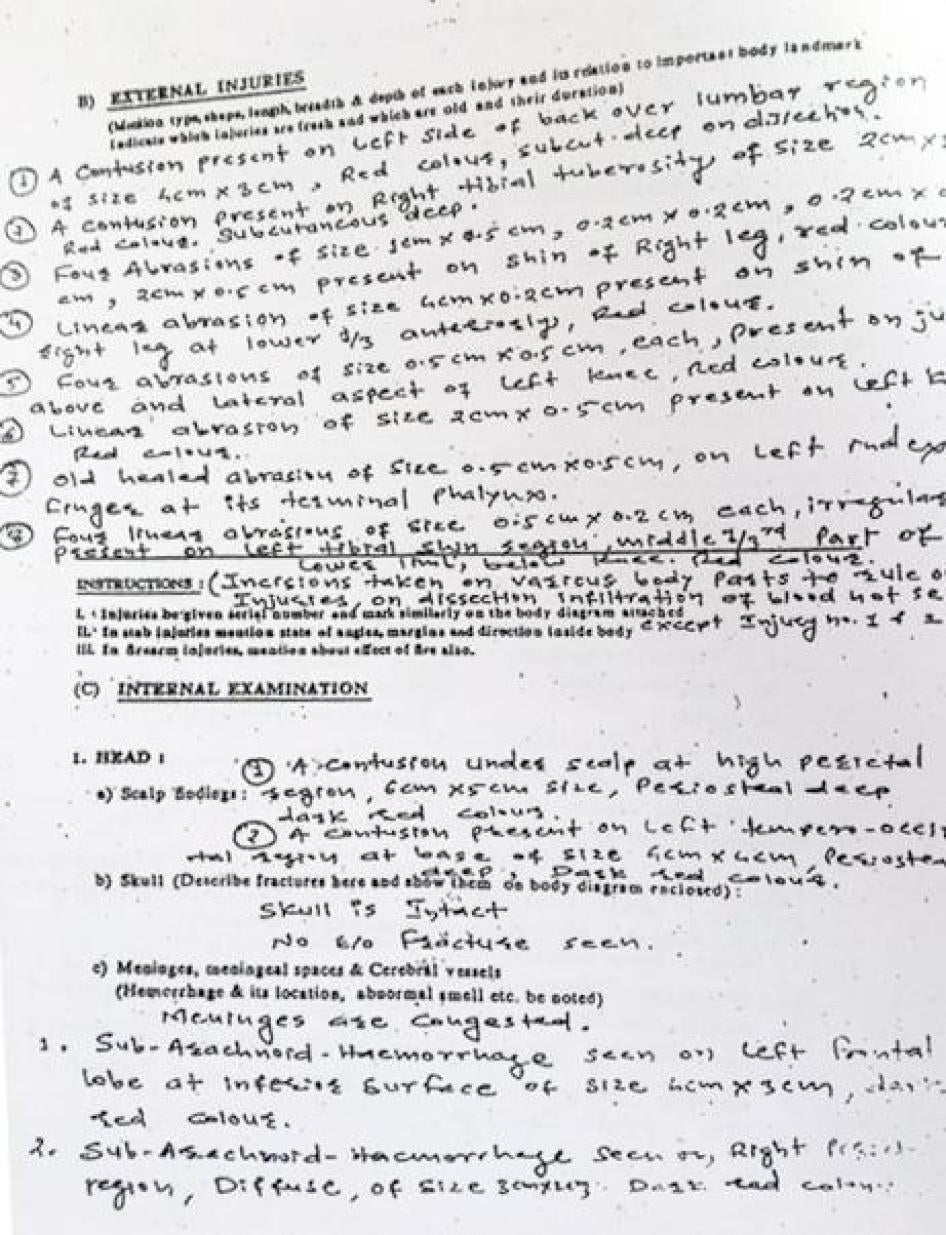 B) EXTERNAL INJURIES
(Mention type, shape, length, breadth & depth of each injury and its relation to important body landmark
Indicate which injuries are fresh and which are old and their duration)
① A Contusion present on Left Side of back over lumbar region
of size 4cm x 3cm, Red colour, subcut-deep on dissection.
② A contusion present on Right tibial tuberosity, of size 2cm x
Red colour. Subcutaneous deep.
③ Four Abrasions of size 1cm x 0.5 cm, 0.2cm x 0.2cm, 0.2cm x
cm, 2cm x 0.5 cm present on shin of Right leg, red colour
④ Linear abrasion of size 4cm x 0.2cm present on shin of
right leg at lower 1/3 anteriorly, Red colour.
⑤ Four abrasions of size 0.5 cm x 0.5 cm, each, present on ju
above and lateral aspect of Left knee, Red colour.
⑥ Linear abrasion of size 2cm x 0.5cm present on Left k
Red colour.
⑦ old healed abrasion of size 0.5 cm x 0.5 cm, on Left Index
finger at its terminal Phalynx.
⑧ Four linear abrasions of size 0.5 cm x 0.2 cm each, irregular
present on Left tibial shin region, middle 1/3rd Part of
Lower limb, below knee. Red colour.
INSTRUCTIONS : (Incisions taken on various body Parts to rule o
Injuries, on dissection infiltration of blood not se
I. Injuries be given serial number and mark similarly on the body diagram attached
II. In stab injuries mention state of angles, margins and direction inside body except Injury no. 1 & 2
III. In firearm injuries, mention about effect of fire also.
(C) INTERNAL EXAMINATION
1. HEAD :
① A contusion under scalp at high perietal
a) Scalp findings : region, 6cm x 5cm size, Periosteal deep
dark red colour.
② A contusion present on Left tempero-occipi
tal region at base of size 4cm x 4cm, Periostea
deep, Dark red colour.
b) Skull (Describe fractures here and show them on body diagram enclosed) :
Skull is Intact
No E/o Fracture seen.
c) Meninges, meningeal spaces & Cerebral vessels
(Hemorrhage & its location, abnormal smell etc. be noted)
Meninges are Congested.
1. Sub-Arachnoid-Haemorrhage seen on Left frontal
lobe at inferior surface of size 4cm x 3cm, dar
red colour.
2. Sub-Arachnoid-Haemorrhage seen on, Right
region, Diffuse, of size Dark red colour